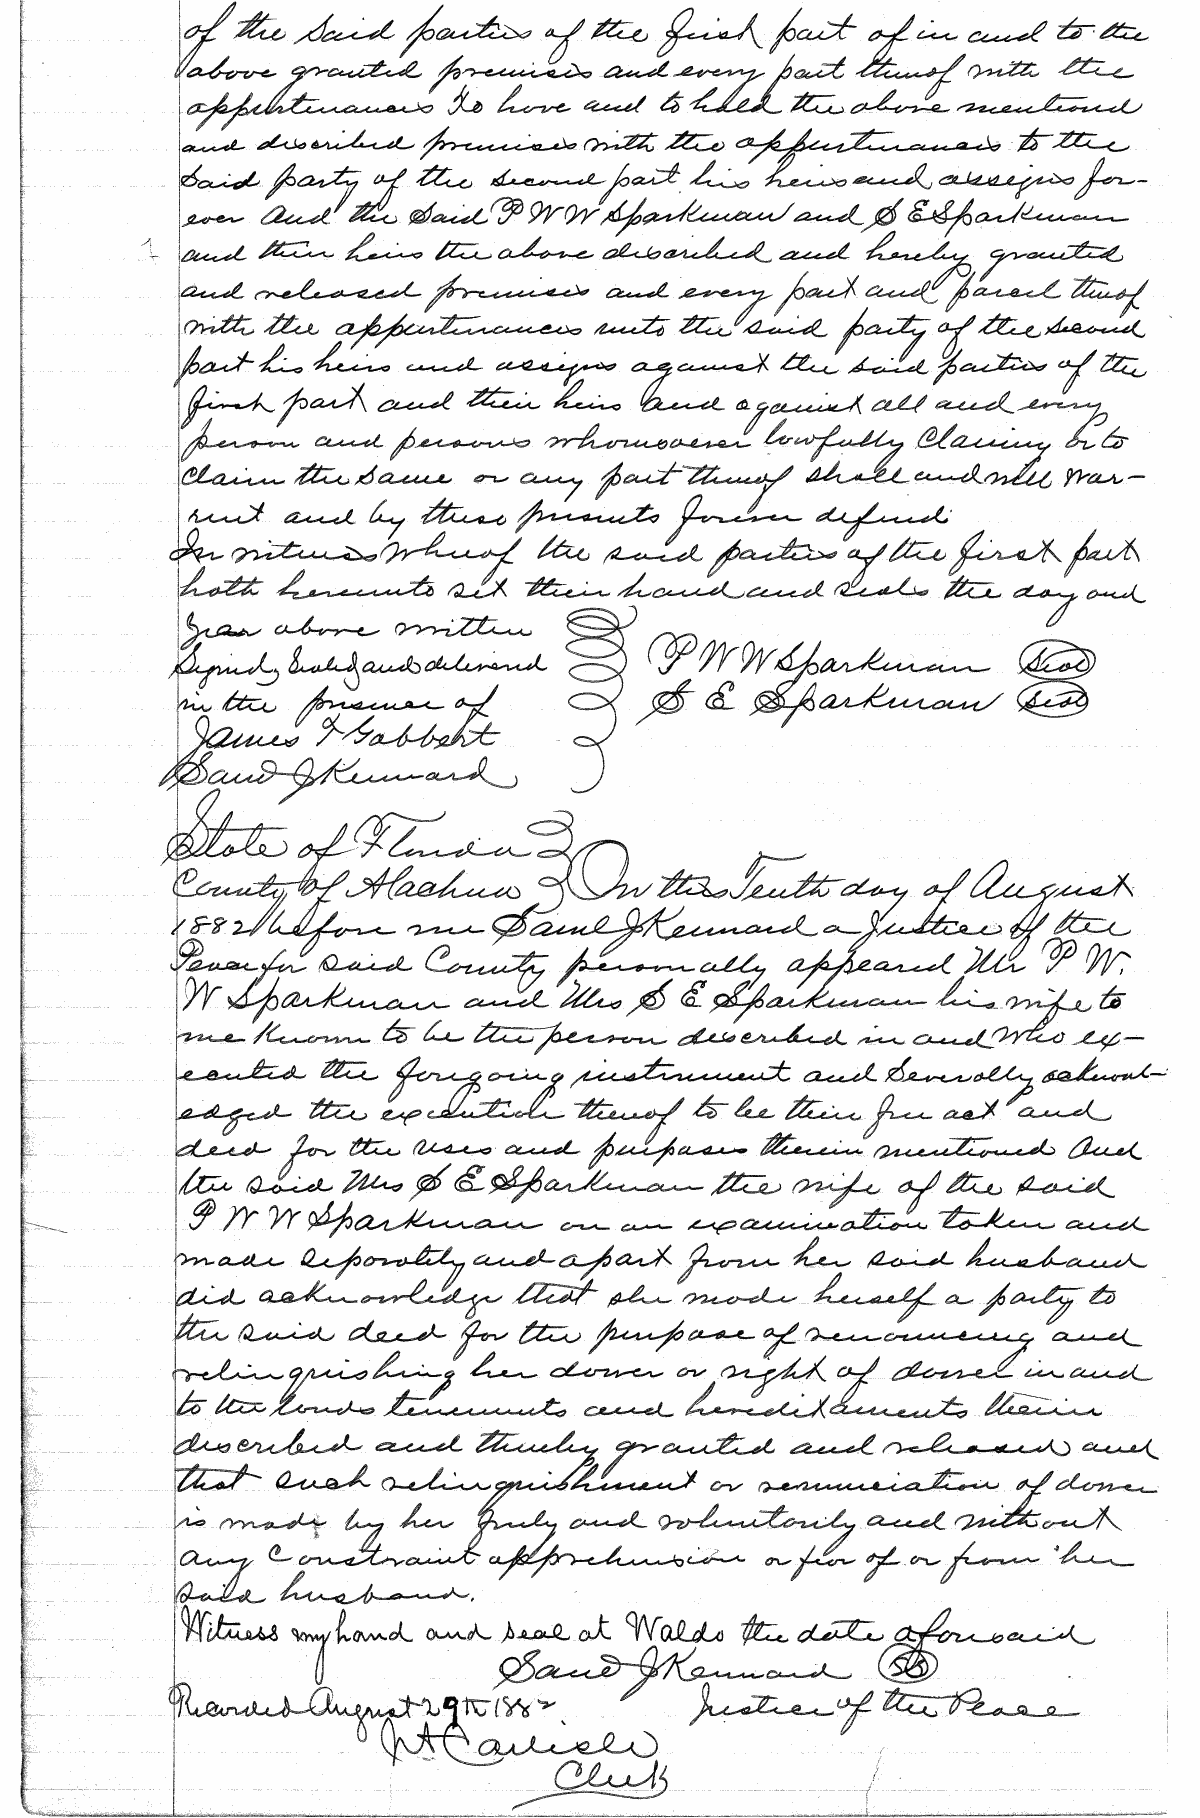 of the Said parties of the first part of in and to the
above granted premises and every part thereof with the
appurtenances To have and to hold the above mentioned
and described premises with the appurtenances to the
Said party of the second part his heirs and assigns for-
ever And the Said P W W Sparkman and S E Sparkman
and their heirs the above described and hereby granted
and released premises and every part and parcel thereof
with the appurtenances unto the said party of the second
part his heirs and assigns against the said parties of the
first part and their heirs and against all and every
person and persons whomsoever lawfully Claiming or to
Claim the Same or any part thereof shall and will War-
rent and by these presents forever defend
In witness Whereof the said parties of the first part
hath hereunto set their hand and seals the day and
year above written
Signed, Sealed and delivered P W W Sparkman Seal
in the presence of S E Sparkman Seal
James T Gabbert
Saml J Kennard
State of Florida
County of Alachua On this Tenth day of August
1882 before me Saml J Kennard a Justice of the
Peace for said County personally appeared Mr P W.
W Sparkman and Mrs S E Sparkman his wife to
me Known to be the person described in and Who ex-
ecuted the foregoing instrument and Severally acknowl-
edged the execution thereof to be their free act and
deed for the uses and purposes therein mentioned And
the said Mrs S E Sparkman the wife of the said
P W W Sparkman on an examination taken and
made seperately and apart from her said husband
did acknowledge that she made herself a party to
the said deed for the purpose of renouncing and
relinquishing her dower or right of dower in and
to the lands tenements and hereditaments therein
described and thereby granted and released and
that such relinquishment or renunciation of dower
is made by her freely and voluntarily and without
any Constraint apprehension or fear of or from her
said husband.
Witness my hand and seal at Waldo the date aforesaid
Saml J Kennard SS
Recorded August 29th 1882 Justice of the Peace
J A Carlisle
Clerk